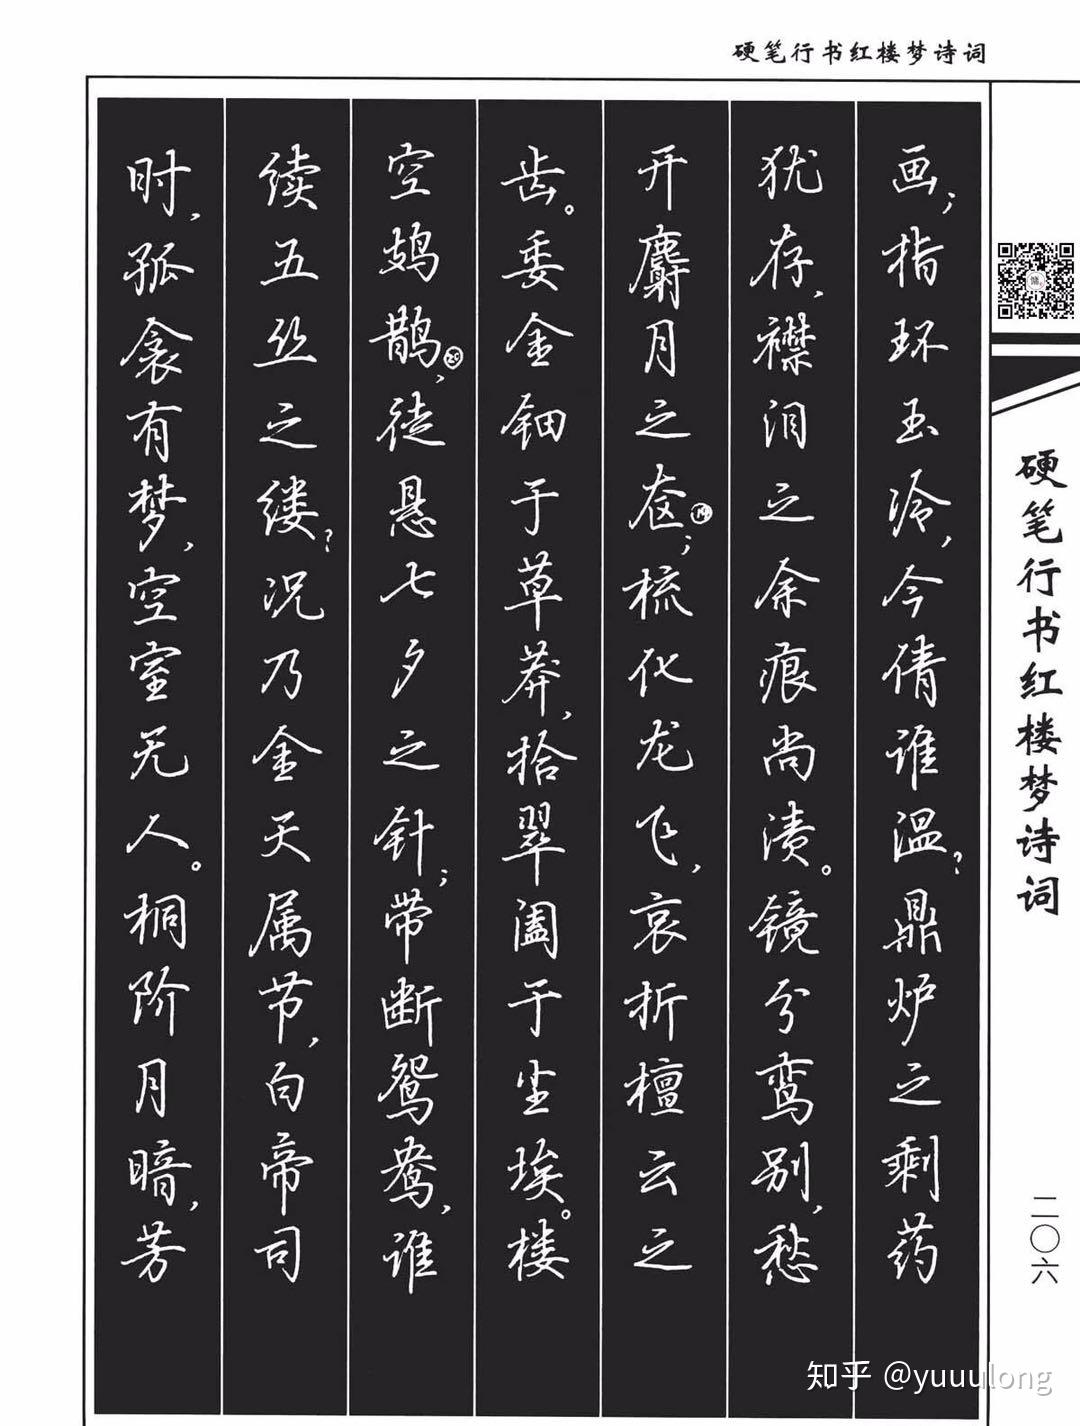 硬笔行书红楼梦诗词
画；指环玉冷，今倩谁温？鼎炉之剩药
犹存，襟泪之余痕尚渍。镜分鸾别，愁
开麝月之奁⑲；梳化龙飞，哀折檀云之
齿。委金钿于草莽，拾翠盍于尘埃。楼
空鳷鹊⑳，徒悬七夕之针；带断鸳鸯，谁
续五丝之缕？况乃金天属节，白帝司
时，孤衾有梦，空室无人。桐阶月暗，芳
硬笔行书红楼梦诗词
二〇六
知乎 @yuuulong